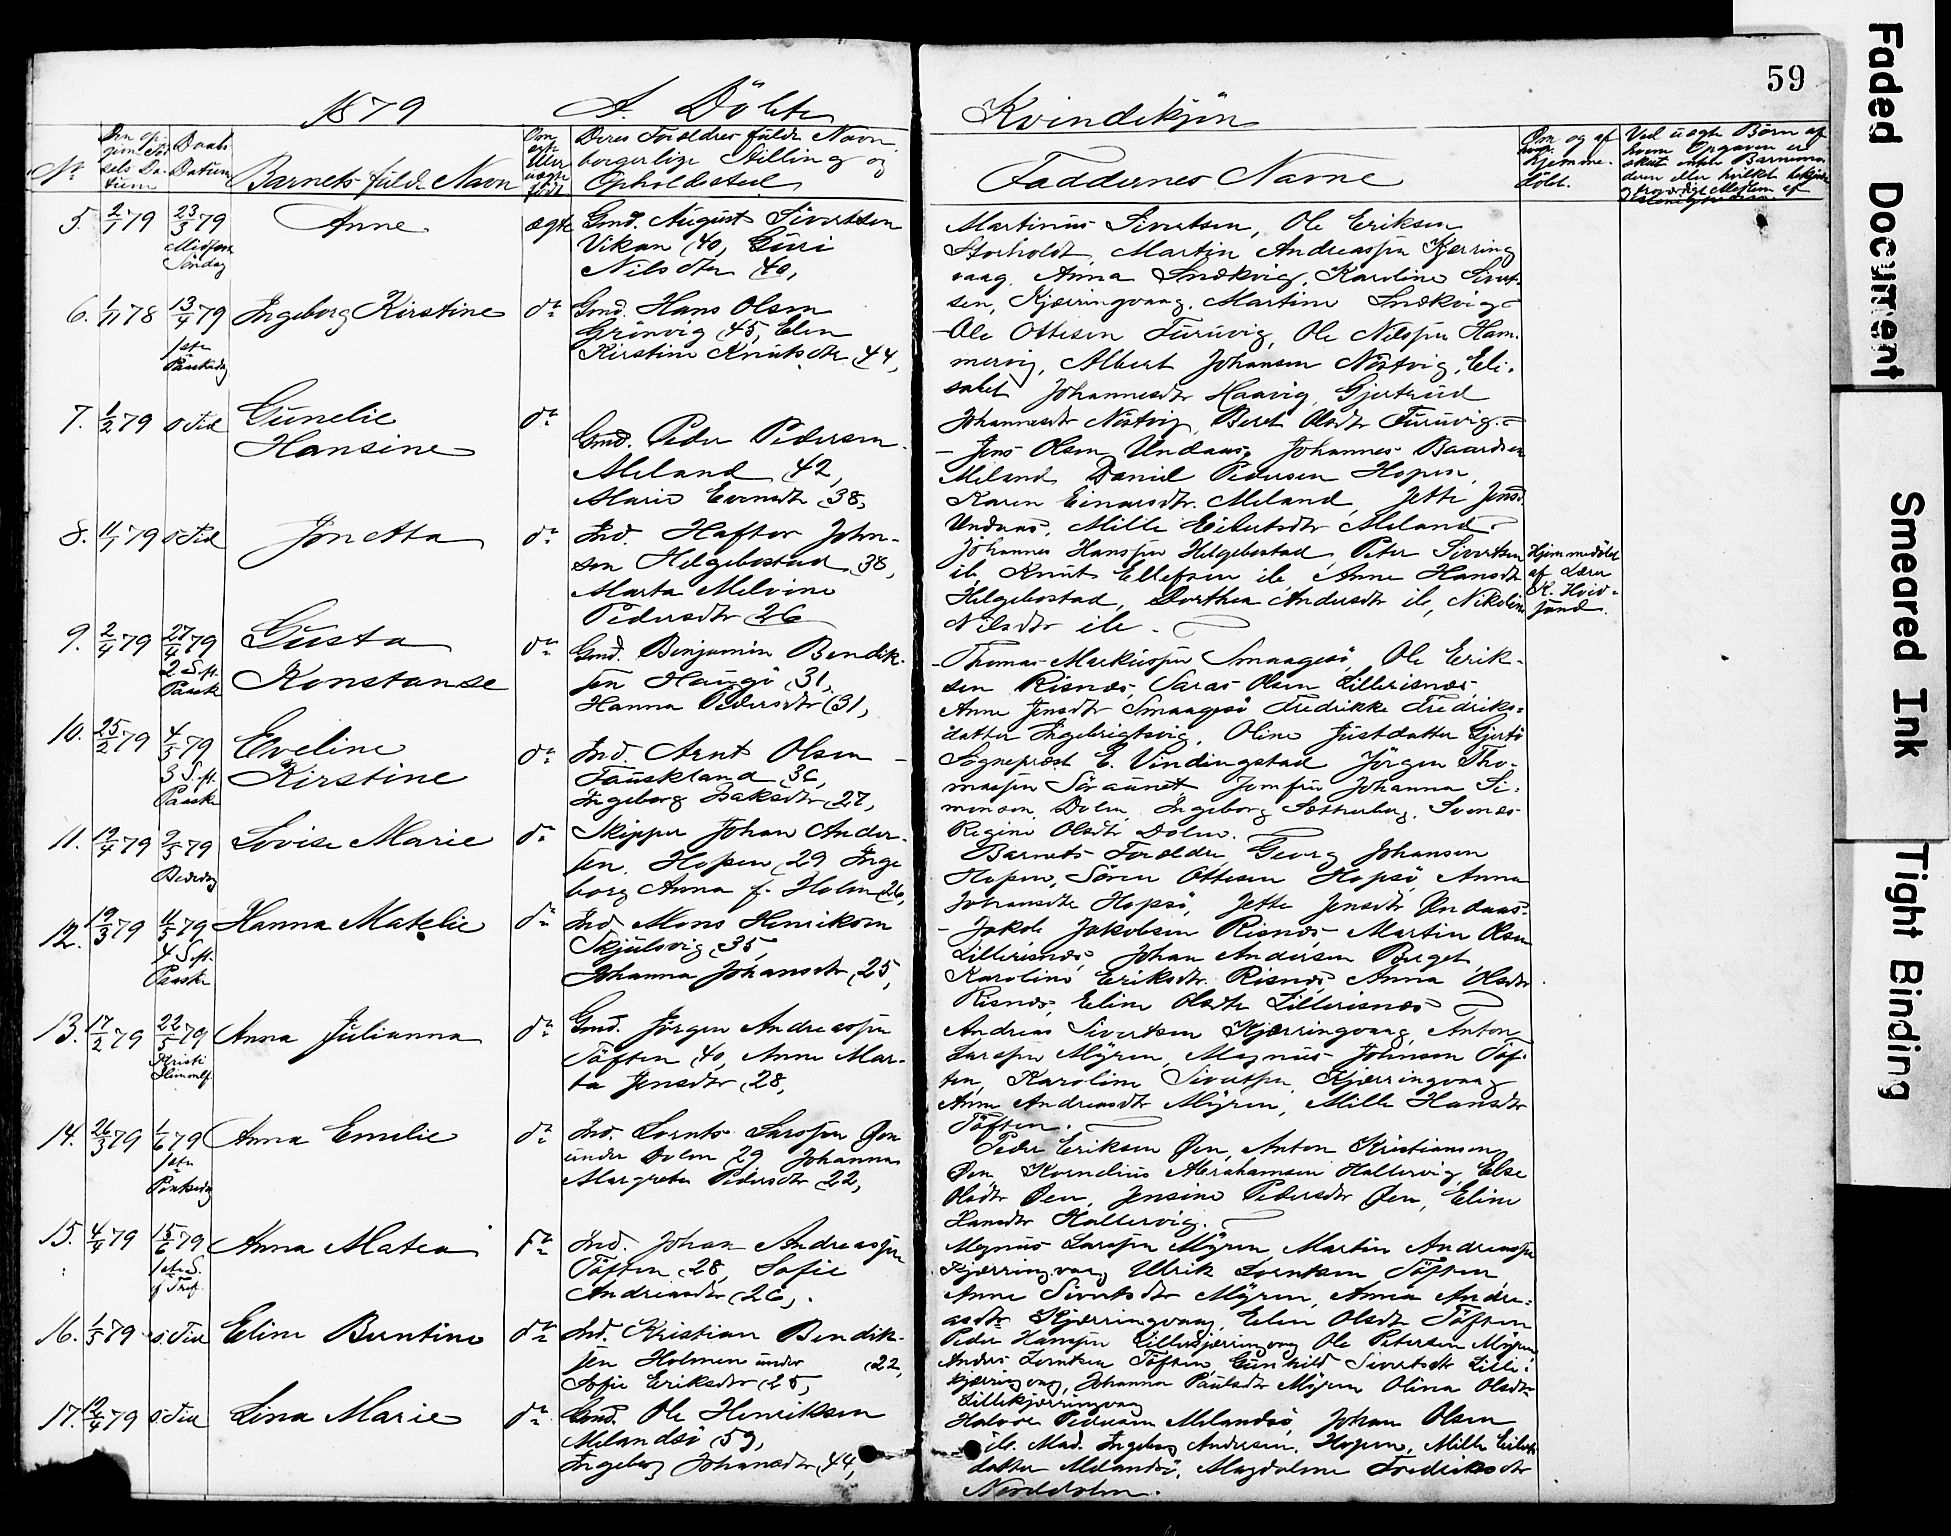 59
1879 A. Döbte Kvindekjøn
No Daabs Datum Barnets fulde Navn Deres Forældres fulde Navn, borgerlige Stilling og Opholdssted Faddernes Navne Om og af hvem hjemmedöbt.
5. 2/1 79 23/3 79 Midfaste Söndag Anne ægte Gmd. August Sivertsen
Vikan (40, Guri
Nilsdtr (40,
Martinus Sivertsen, Ole Eriksen
Storholdt, Martin Andreassen Kjerring
vaag, Anna Snekvig, Karoline Sivert-
sen, Kjerringvaag, Martine Snekvig
6. 1/11 78 13/4 79 1ste Paaskedag Ingeborg Kirstine do Gmd. Hans Olsen
Grönvig (45, Elen
Kirstine Knutsdtr (44,
Ole Ottesen Furuvig, Ole Nilssen Ham-
mervig, Albert Johansen Nöstvig, Eli-
sabet Johannesdtr Haavig, Gjertrud
Johannesdtr Nöstvig, Beret Olsdtr Furuvig.
7. 1/2 79 s. Tid Gunelie
Hansine do Gmd. Peder Pedersen
Meland (42,
Marie Evensdtr (38,
Jens Olsen Undaas, Johannes Baardsen
Meland, Daniel Pedersen Hopen,
Karen Einarsdtr. Meland, Jette Jensd
Undaas, Mille Eilertsdtr Meland
8. 11/1 79 s. Tid Jonetta do Ind. Haftor John-
sen Helgebostad (38,
Marta Melvine
Pedersdtr (26
Johannes Hanssen Helgebostad, Peter Sivertsen
ib, Knut Ellefsen ib, Anne Hansdtr
Helgebostad, Dorthea Andersdtr ib, Nikoline
Nilsdtr ib.
Hjemmedöbt
af Lærer
K. Hvid-
sand.
9. 2/4 79 27/4 79 2 S. eft. Paaske Gusta
Konstanse do Gmd. Benjamin Bendik-
sen Haugö (31,
Hanna Pedersdtr (31,
Thomas Markussen Smaagesö, Ole Erik-
sen Risnæs, Laras Olsen Lillerisnæs,
Anne Jensdtr Smaagesö Fredrikke Fredriks-
datter Ingebrigtsvig, Oline Justdatter Gjertö
10. 25/2 79 4/5 79 3 S. eft. Paaske Eveline
Kirstine do Ind. Arnt Olsen
Fauskland (36,
Ingeborg Isaksdtr (27,
Sogneprest E. Vindingstad Jörgen Tho-
massen Söraunet, Jomfru Johanna Si-
monsen, Dolm, Ingeborg Sætherberg, Svenæs
Regine Olsdtr Dolm.
11. 12/4 79 9/5 79 Bededag Lovise Marie do Skipper Johan Ander-
sen, Hopen (29 Inge
borg Anna f. Holm (26,
Barnets Forældre, Georg Johansen
Hopen, Sören Ottesen Hopsö, Anna
Johansdtr Hopsö, Jette Jensdtr Undaas
12. 19/3 79 11/5 79 4 S. eft. Paaske Hanna Matelie do Ind Mons Henriksen
Skjulsvig (35,
Johanna Johansdtr (25,
Jakob Jakobsen Risnæs, Martin Olsen
Lillerisnæs, Johan Andersen Berget
Karoline Eriksdtr. Risnæs, Anna Olsdtr
Risnæs, Eline Olsdtr Lillerisnæs
13. 17/2 79 22/5 79 Kristi Himmelf. Anna Julianna do Gmd. Jörgen Andreassen
Töften (40, Anne Mar-
ta Jensdtr (28,
Andreas Sivertsen Kjerringvaag, Anton
Larssen Myren, Magnus Johnsen Töf-
ten, Karoline Sivertsen, Kjerringvaag
Anne Andreasdtr Myren, Mille Hansdtr
Töften.
14. 26/3 79 1/6 79 1ste Pintsedag Anna Emelie do Ind. Lornts Larssen Øen
under Dolm 29 Johanna
Margrete Pedersdtr (22,
Peder Eriksen Øen, Anton Kristiansen
Øen, Kornelius Abrahamsen Hallervig, Else
Olsdtr Øen, Jensine Pedersdtr Øen, Eline
Hansdtr Hallervig.
15. 4/4 79 15/6 79 1ste S. ef Tref. Anna Matea do Ind. Johan Andreassen
Töften (28, Sofie
Andreasdtr (26,
Magnus Larssen Myren, Martin Andreassen
Kjerringvaag Ulrik Lorntsen Töften,
Anne Sivertsdtr Myren, Anna Andre-
asdtr Kjerringvaag, Elen Olsdtr Töften
16. 1/5 79 s. Tid Eline Berntine do Ind. Kristian Bendik-
sen Holmen under (22,
Sofie Eriksdtr (25,
Peder Hanssen Lillekjerringvaag Ole Petersen Myren
Anders Lorntsen Töften, Gunhild Sivertsdtr Lille-
kjerringvaag, Johanna Paulsdtr Myren Olina Olsdtr
Lillekjerringvaag
17. 12/4 79 s. Tid Lina Marie do Gmd. Ole Henriksen
Melandsö (59,
Ingeborg Johansdtr (44,
Halvor Pedersen Melandsö, Johan Olsen
ib. Mad. Ingeborg Andersen, Hopen, Mille Eilerts
datter Melandsö, Magdalene Fredriksdtr
Norddolm.
Faded Document
Smeared Ink
Tight Binding